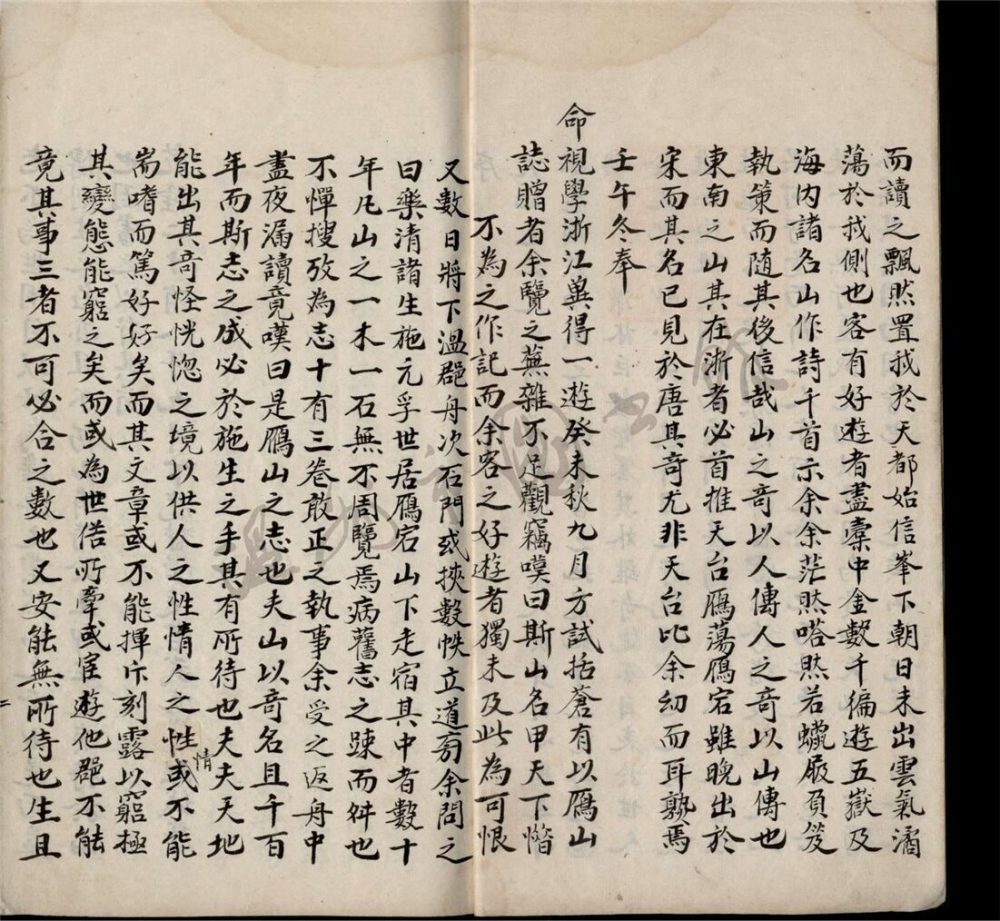 而讀之飄然置我於天都始信峯下朝日未出雲氣潏
蕩於我側也客有好遊者盡槖中金數千徧遊五嶽及
海内諸名山作詩千首示余余茫然嗒然若蠟屐負笈
執策而随其後信哉山之奇以人傳人之奇以山傳也
東南之山其在浙者必首推天台鴈蕩鴈宕雖晚出於
宋而其名已見於唐其奇尤非天台比余幼而耳熟焉
壬午冬奉
命視學浙江兾得一遊癸未秋九月方試括蒼有以鴈山
誌贈者余覽之蕪雜不足觀竊嘆曰斯山名甲天下惜
不為之作記而余客之好遊者獨未及此為可恨
又數日將下溫郡舟次石門或挾數帙立道旁余問之
曰樂清諸生施元孚世居鴈宕山下走宿其中者數十
年凡山之一木一石無不周覽焉病舊志之踈而舛也
不憚搜攷為志十有三卷敢正之執事余受之返舟中
盡夜漏讀竟嘆曰是鴈山之志也夫山以奇名且千百
年而斯志之成必於施生之手其有所待也夫夫天地
能出其奇怪恍惚之境以供人之性情人之性情或不能
耑嗜而篤好好矣而其文章或不能揮斥刻露以窮極
其變態能窮之矣而或為世俗所牽或宦遊他郡不能
竟其事三者不可必合之數也又安能無所待也生且